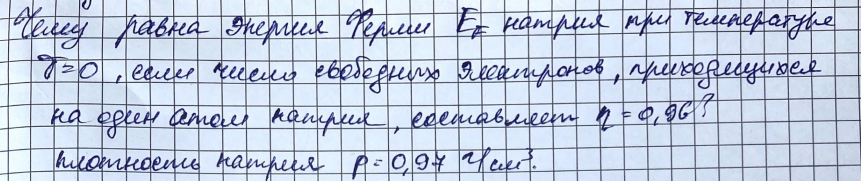 Чему равна энергия Ферми E_F натрия при температуре
T=0, если число свободных электронов, приходящихся
на один атом натрия, составляет η = 0,96?
Плотность натрия ρ = 0,97 г/см³.